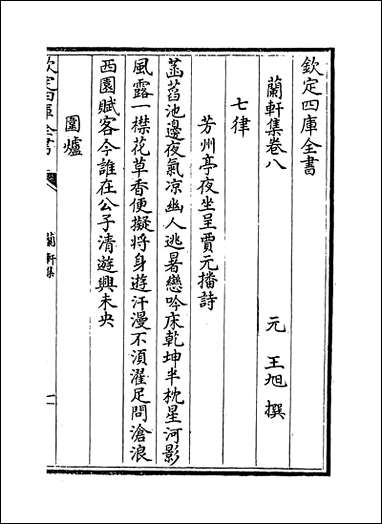 欽定四庫全書
蘭軒集卷八
元 王旭 撰
七律
芳州亭夜坐呈賈元播詩
菡萏池邊夜氣凉幽人逃暑戀吟床乾坤半枕星河影
風露一襟花草香便擬將身遊汗漫不湏濯足問滄浪
西園賦客今誰在公子清遊興未央
圍爐
欽定四庫全書
蘭軒集
一